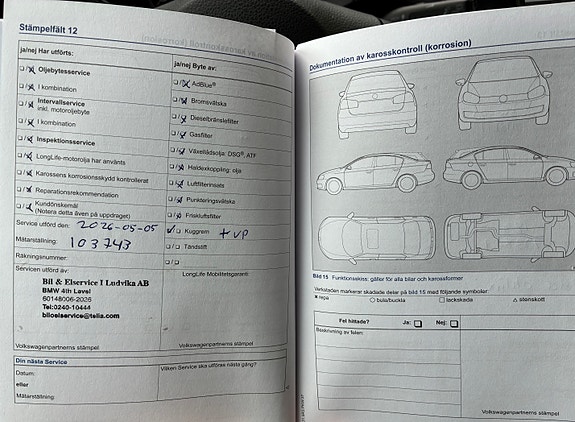 Stämpelfält 12
ja/nej Har utförts:
Oljebytesservice
I kombination
Intervallservice
inkl. motoroljebyte
I kombination
Inspektionsservice
LongLife-motorolja har använts
Karossens korrosionsskydd kontrollerat
Reparationsrekommendation
Kundönskemål
(Notera detta även på uppdraget)
Service utförd den: 2026-05-05
Mätarställning: 103743
Räkningsnummer:
Servicen utförd av:
Bil & Elservice I Ludvika AB
BMW 4th Level
60148006-2026
Tel:0240-10444
biloelservice@telia.com
Volkswagenpartnerns stämpel
Din nästa Service
Datum:
eller
Mätarställning:
ja/nej Byte av:
AdBlue®
Bromsvätska
Dieselbränslefilter
Gasfilter
Växellådsolja: DSG®, ATF
Haldexkoppling: olja
Luftfilterinsats
Punkteringsvätska
Friskluftsfilter
Kuggrem + VP
Tändstift
LongLife Mobilitetsgaranti
Volkswagenpartnerns stämpel
Vilken Service ska utföras nästa gång?
Dokumentation av karosskontroll (korrosion)
Bild 15 Funktionsskiss: gäller för alla bilar och karossformer
Verkstaden markerar skadade delar på bild 15 med följande symboler:
× repa ○ bula/buckla □ lackskada △ stenskott
Fel hittade? Ja: Nej:
Beskrivning av felen:
Volkswagenpartnerns stämpel